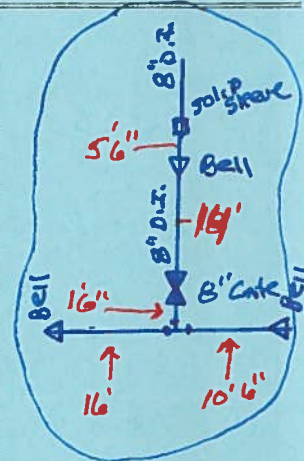 8" D.I.
Solid
Sleeve
5'6"
Bell
8" D.I.
8" Gate
1'6"
Bell
Bell
16'
10'6"